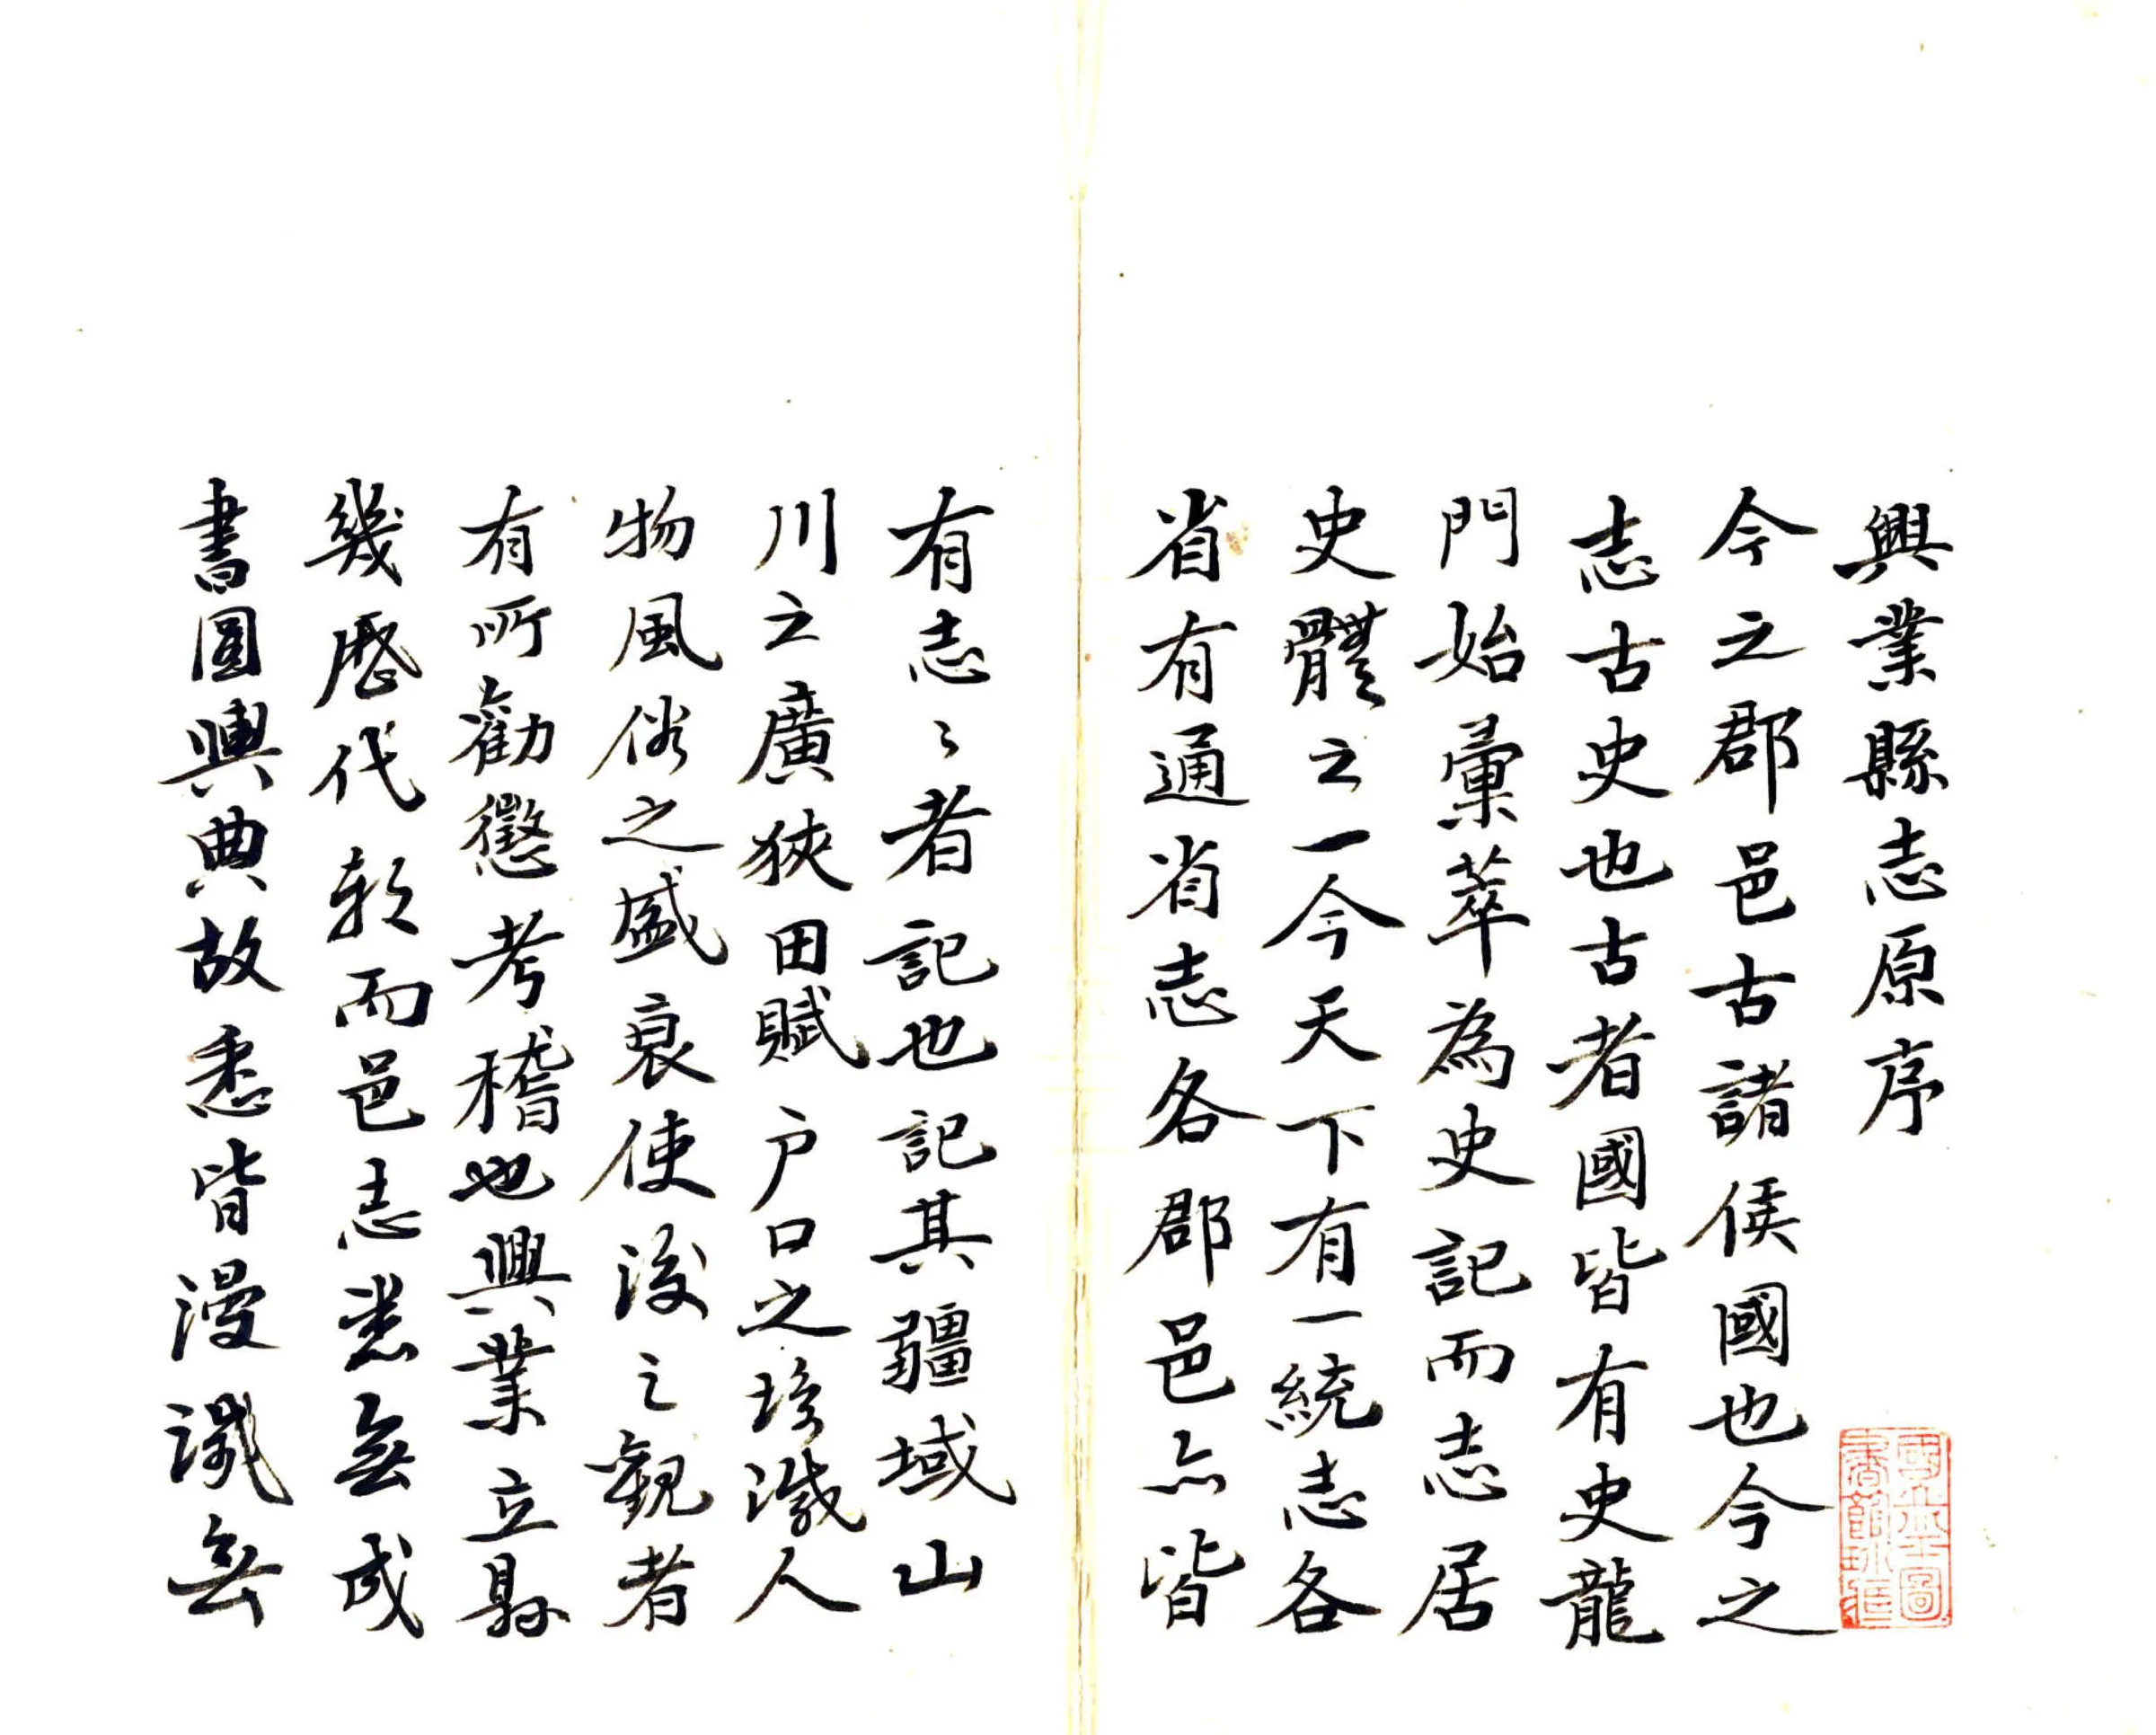 興業縣志原序
今之郡邑古諸侯國也今之
志古史也古者國皆有史龍
門始彙萃為史記而志居
史體之一今天下有一統志各
省有通省志各郡邑亦皆
有志〻者記也記其疆域山
川之廣狹田賦户口之珍瀸人
物風俗之盛衰使後之觀者
有所勸懲考稽也興業立縣
幾歷代㪅而邑志悉無成
書圖輿典故悉皆漫識無
國立圖
書館珍藏